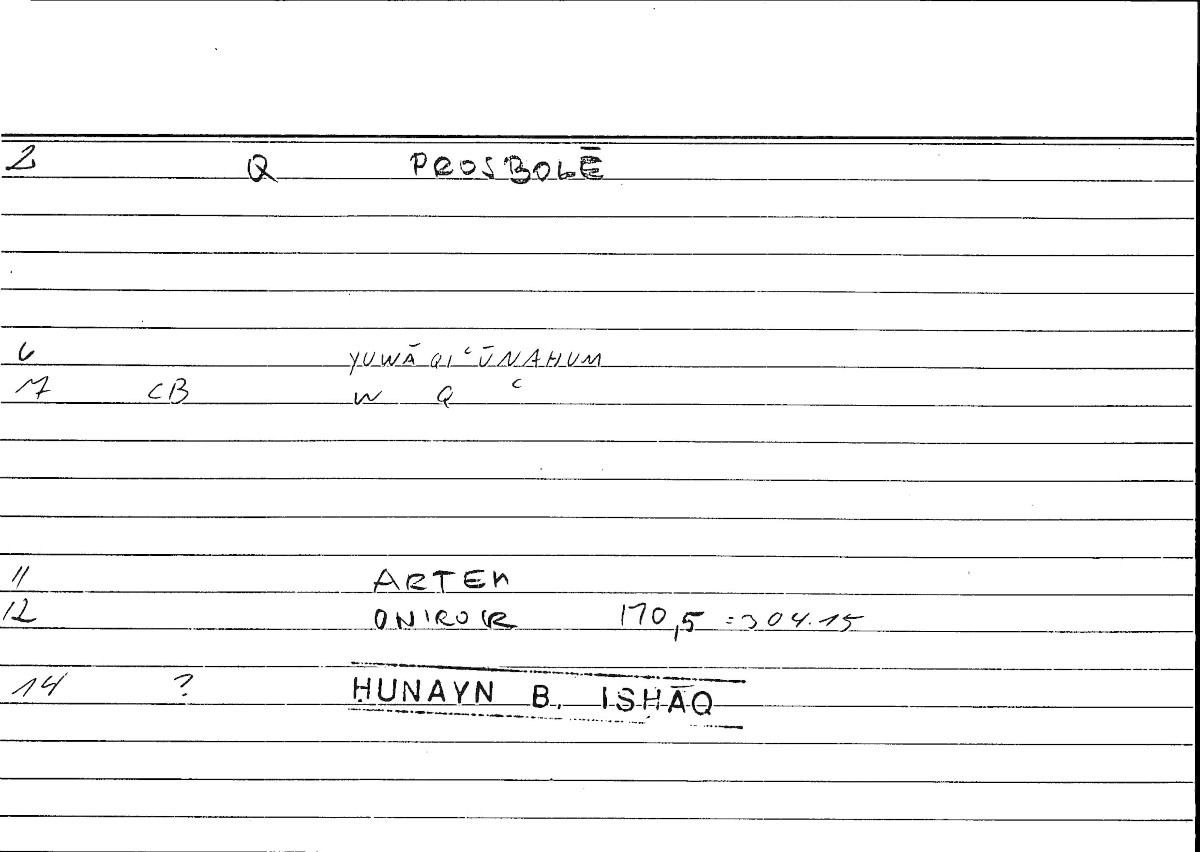 2 Q PROSBOLĒ
6 YUWĀQIʿŪNAHUM
7 CB W Q ʿ
11 ARTEM
12 ONIROCR 170,5 = 304.15
14 ? ḤUNAYN B. ISḤĀQ